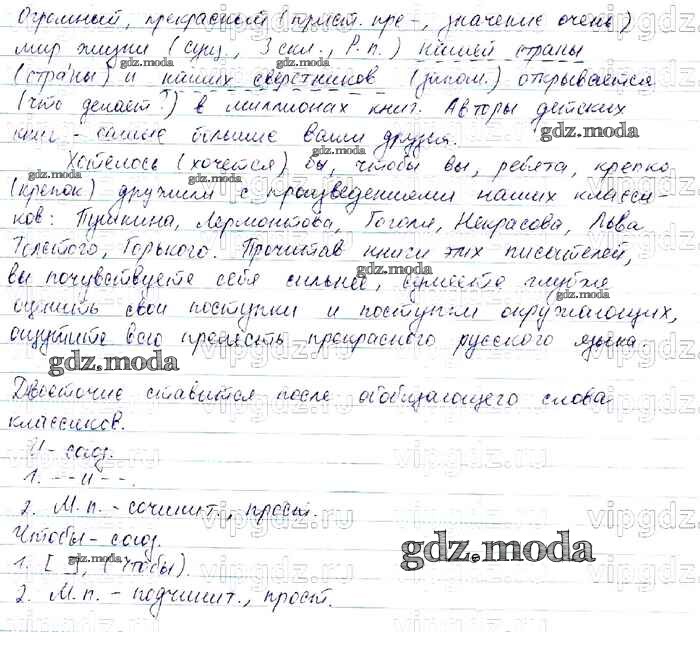 Огромный, прекрасный (прист. пре-, значение очень)
мир жизни (сущ., 3 скл., Р.п.) нашей страны
(стра́ны) и наших сверстников (диал.) открывается
(что делает?) в миллионах книг. Авторы детских
книг - самые большие ваши друзья.
Хотелось (хочется) бы, чтобы вы, ребята, крепко
(крепок) дружили с произведениями наших класси-
ков: Пушкина, Лермонтова, Гоголя, Некрасова, Льва
Толстого, Горького. Прочитав книги этих писателей,
вы почувствуете себя сильнее, сумеете глубже
оценить свои поступки и поступки окружающих,
ощутите всю прелесть прекрасного русского языка.
Двоеточие ставится после обобщающего слова
классиков.
И - союз.
1. -- и --.
2. М.п. - сочинит., прост.
Чтобы - союз.
1. [ ], (чтобы).
2. М.п. - подчинит., прост.
gdz.moda
vipgdz.ru